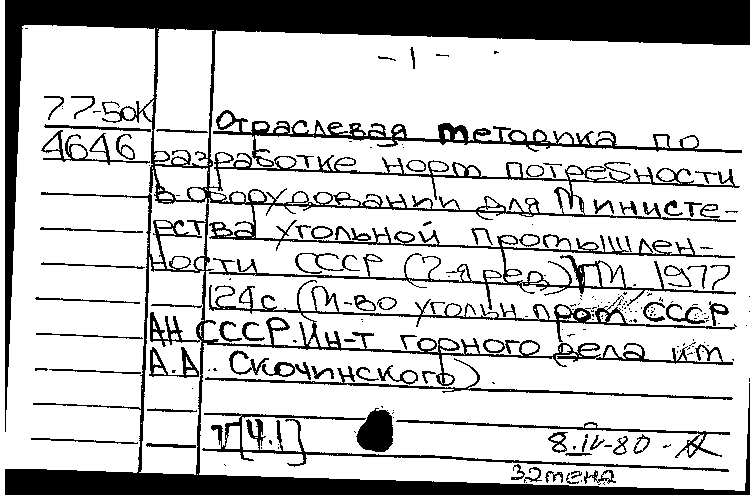 - 1 -
77-50К
4646
Отраслевая методика по
разработке норм потребности
в оборудовании для Министе-
рства угольной промышлен-
ности СССР (2-я ред.) М. 1977
124с (М-во угольн пром. СССР
АН СССР. Ин-т горного дела им.
А.А. Скочинского).
[4.1]
8.IV-80 -
Замена